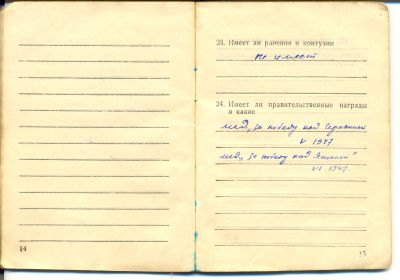 14
23. Имеет ли ранения и контузии
не имеет
24. Имеет ли правительственные награды
и какие
мед. „За победу над Германией
V 1947
мед. „За победу над Японией"
VI 1947.
15